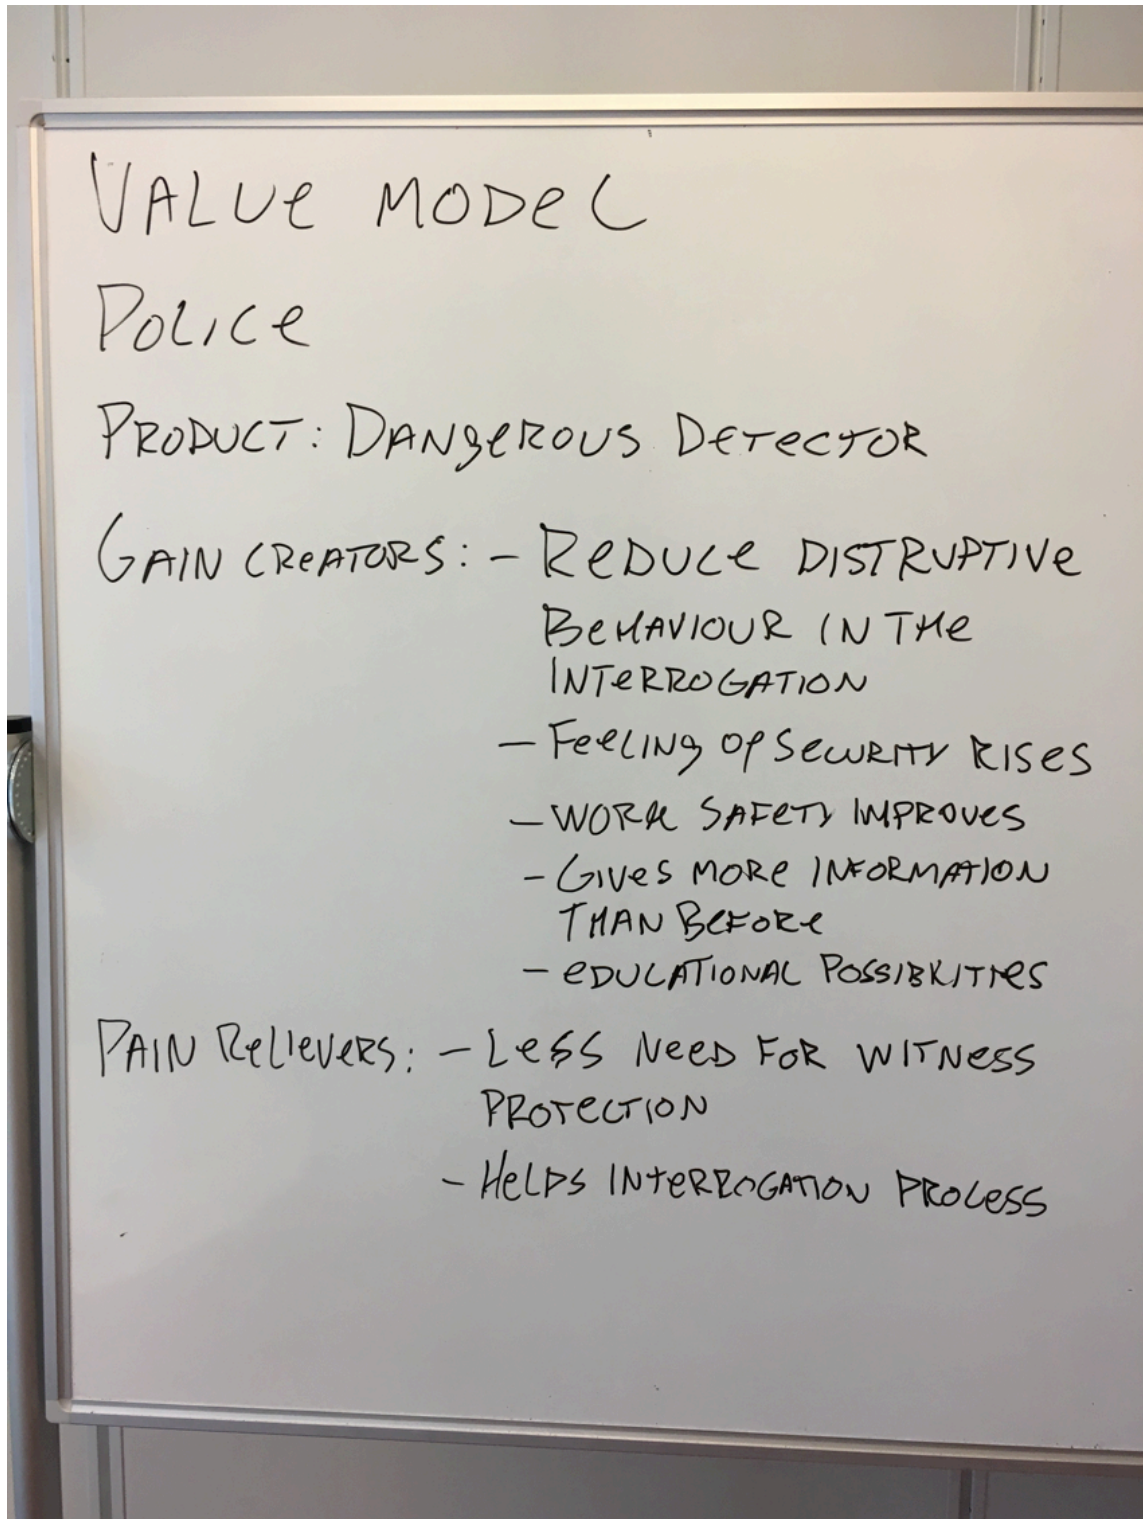 VALUE MODEL
POLICE
PRODUCT: DANGEROUS DETECTOR
GAIN CREATORS: - REDUCE DISTRUPTIVE
BEHAVIOUR IN THE
INTERROGATION
- FEELING OF SECURITY RISES
- WORK SAFETY IMPROVES
- GIVES MORE INFORMATION
THAN BEFORE
- EDUCATIONAL POSSIBILITIES
PAIN RELIEVERS: - LESS NEED FOR WITNESS
PROTECTION
- HELPS INTERROGATION PROCESS